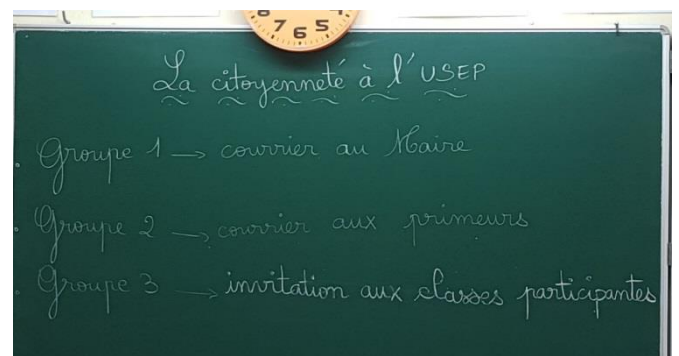 8 7 6 5 4
La citoyenneté à l'USEP
. Groupe 1 → courrier au Maire
. Groupe 2 → courrier aux primeurs
. Groupe 3 → invitation aux classes participantes